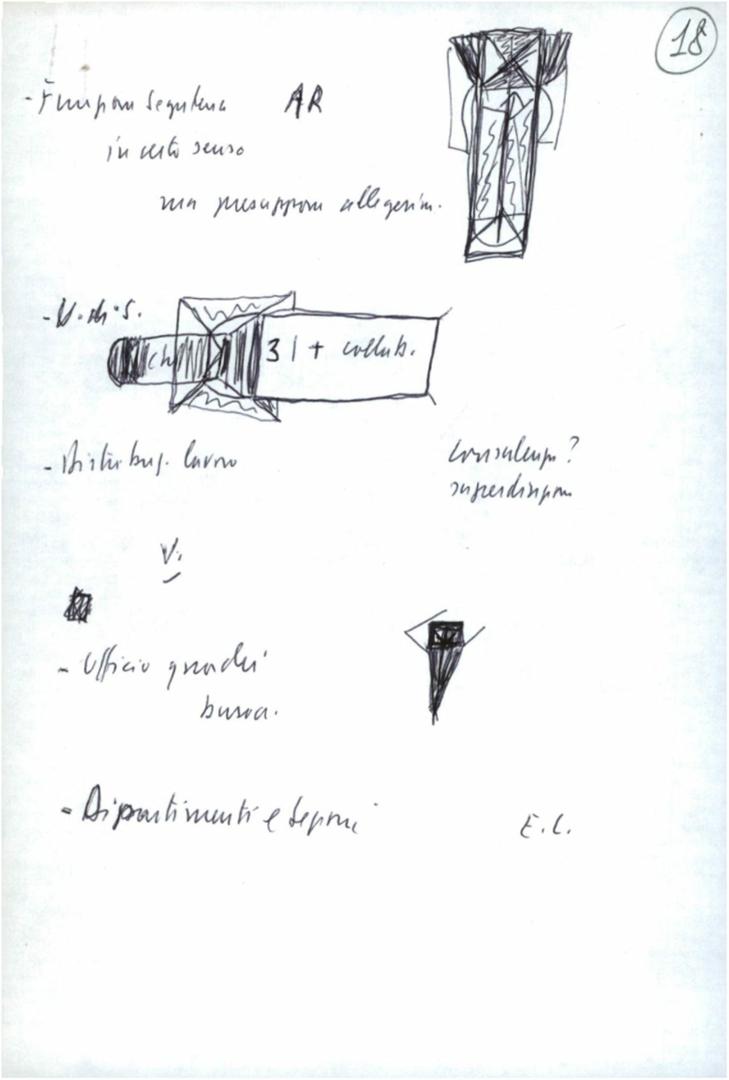 18
- Funzioni Segreteria AR
in certo senso
ma presuppone alleggerim.
- V. di S.
ch 31 + collab.
- Distribuz. lavoro
Consulenza?
superdirezione
V.
- Ufficio quadri
buroa.
- Dipartimenti e Sezioni
E. C.